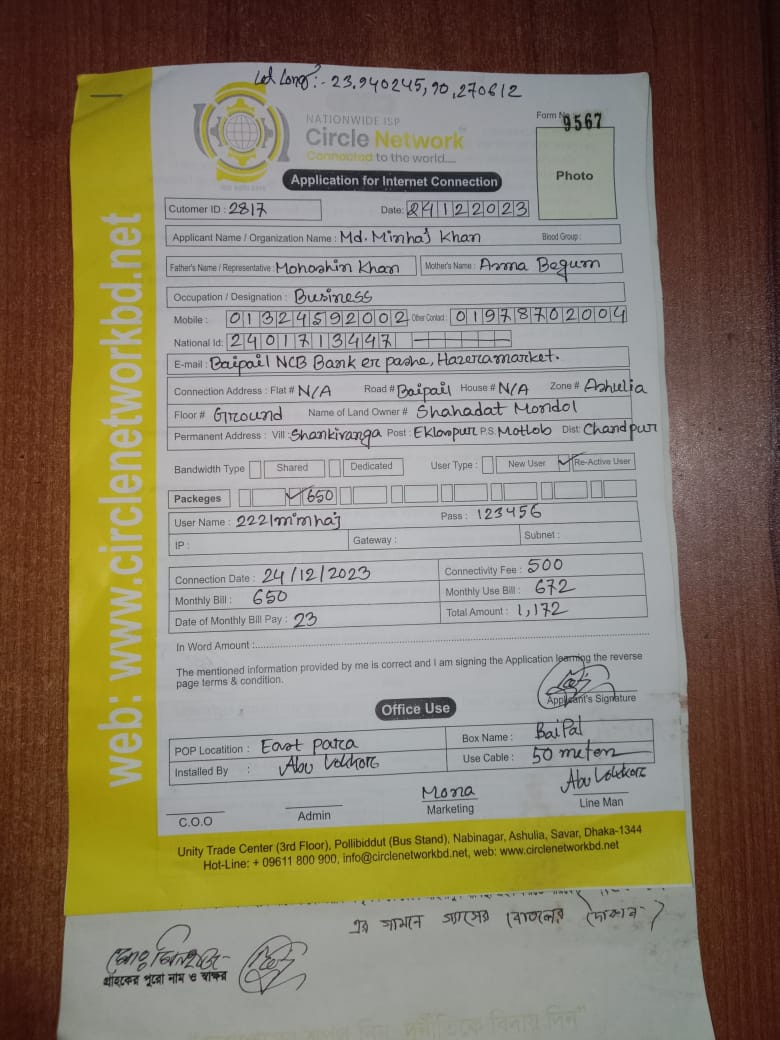 Lat Long:- 23.940245, 90.270612
NATIONWIDE ISP
Circle Network
Connected to the world....
Form No 9567
Photo
Application for Internet Connection
Cutomer ID : 2817 Date: 24122023
Applicant Name / Organization Name : Md. Minhaj Khan Blood Group :
Father's Name / Representative : Mohoshin Khan Mother's Name : Asma Begum
Occupation / Designation : Business
Mobile : 01324592002 Other Contact : 01978702004
National Id: 2401713447
E-mail : Baipail NCB Bank er pashe, Hazera market.
Connection Address : Flat # N/A Road # Baipail House # N/A Zone # Ashulia
Floor # Ground Name of Land Owner # Shahadat Mondol
Permanent Address : Vill : Shankivanga Post : Eklaspur P.S. Motlob Dist: Chandpur
Bandwidth Type Shared Dedicated User Type : New User Re-Active User
Packeges 650
User Name : 2221minhaj Pass : 123456
IP : Gateway : Subnet :
Connection Date : 24/12/2023 Connectivity Fee : 500
Monthly Bill : 650 Monthly Use Bill : 672
Date of Monthly Bill Pay : 23 Total Amount : 1,172
In Word Amount :
The mentioned information provided by me is correct and I am signing the Application learning the reverse
page terms & condition.
Applicant's Signature
Office Use
POP Locatition : East para Box Name : BaiPal
Installed By : Abu Use Cable : 50 meter
Mona Abu
C.O.O Admin Marketing Line Man
Unity Trade Center (3rd Floor), Pollibiddut (Bus Stand), Nabinagar, Ashulia, Savar, Dhaka-1344
Hot-Line: + 09611 800 900, info@circlenetworkbd.net, web: www.circlenetworkbd.net
web: www.circlenetworkbd.net
এর সামনে গ্যাসের বোতলের দোকান)
গ্রাহকের পুরো নাম ও স্বাক্ষর